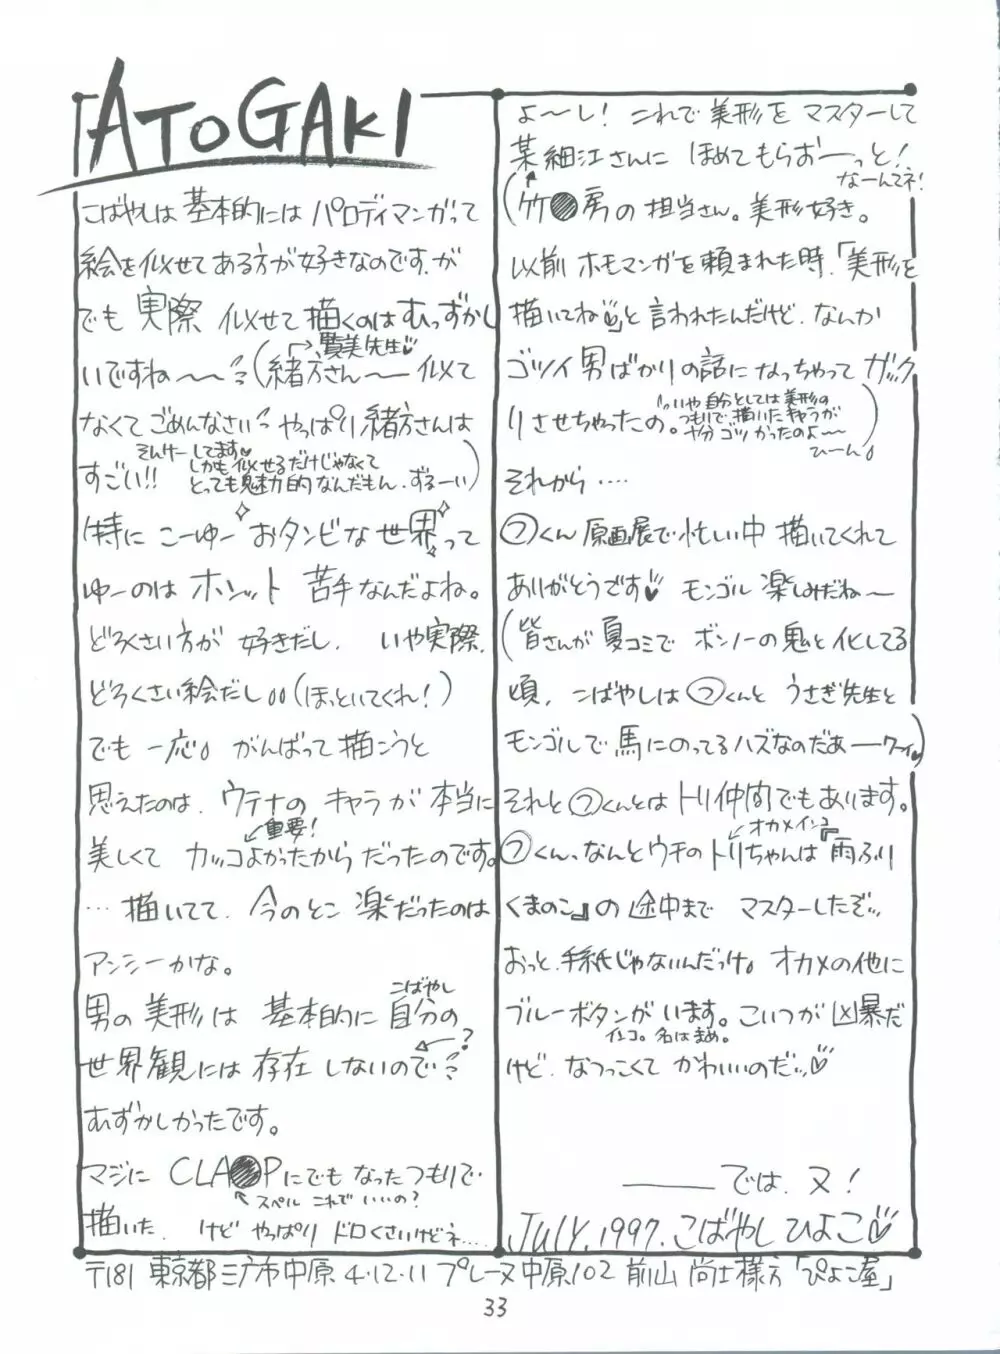 ATOGAKI
こばやしは基本的にはパロディマンガって
絵を似せてある方が好きなのです、が
でも実際似せて描くのはむっずかし
いですね〜〜(緒方さん〜〜似て
→賢美先生♡
なくてごめんなさいやっぱり緒方さんは
すごい!!
そんけーしてます♡
しかも似せるだけじゃなくて
とっても魅力的なんだもん、ずるーい)
特にこーゆーおタンビな世界って
ゆーのはホンット苦手なんだよね。
どろくさい方が好きだし、いや実際、
どろくさい絵だし(ほっといてくれ!)
でも一応。がんばって描こうと
思えたのは、ウテナのキャラが本当に
↙重要!
美しくてカッコよかったからだったのです。
…描いてて、今のとこ楽だったのは
アンシーかな。
こばやし
男の美形は基本的に自分の
世界観には存在しないので
←?
むずかしかったです。
マジにCLA●Pにでもなったつもりで
↖スペルこれでいいの?
描いた、けどやっぱりドロくさいけどネ....
よ〜〜し!これで美形をマスターして
某細江さんにほめてもらおーーっと!
なーんてネ!
(竹●房の担当さん。美形好き。
以前ホモマンガを頼まれた時、「美形を
描いてね♡」と言われたんだけど、なんか
ゴツイ男ばかりの話になっちゃってガック
リさせちゃったの。
いや自分としては美形の
つもりで描いたキャラが
十分ゴツかったのよ〜
ひーん)
それから….
つくん原画展で忙しい中描いてくれて
ありがとうです♡モンゴル楽しみだね〜
(皆さんが夏コミでボンノーの鬼と化してる
頃、こばやしはつくんとうさぎ先生と
モンゴルで馬にのってるハズなのだあーーワーイ)
それとつくんとはトリ仲間でもあります。
↙オカメインコ
つくん、なんとウチのトリちゃんは『雨ふり
くまのこ』の途中までマスターしたぞ
おっと、手紙じゃないんだっけ。オカメの他に
ブルーボタンがいます。こいつが凶暴だ
インコ。名はまめ。
けど、なつっこくてかわいいのだ♡
――では、又!
JULY.1997.こばやしひよこ♡
〒181東京都三鷹市中原4-12-11プレーヌ中原102前山尚士様方「ぴよこ屋」
33